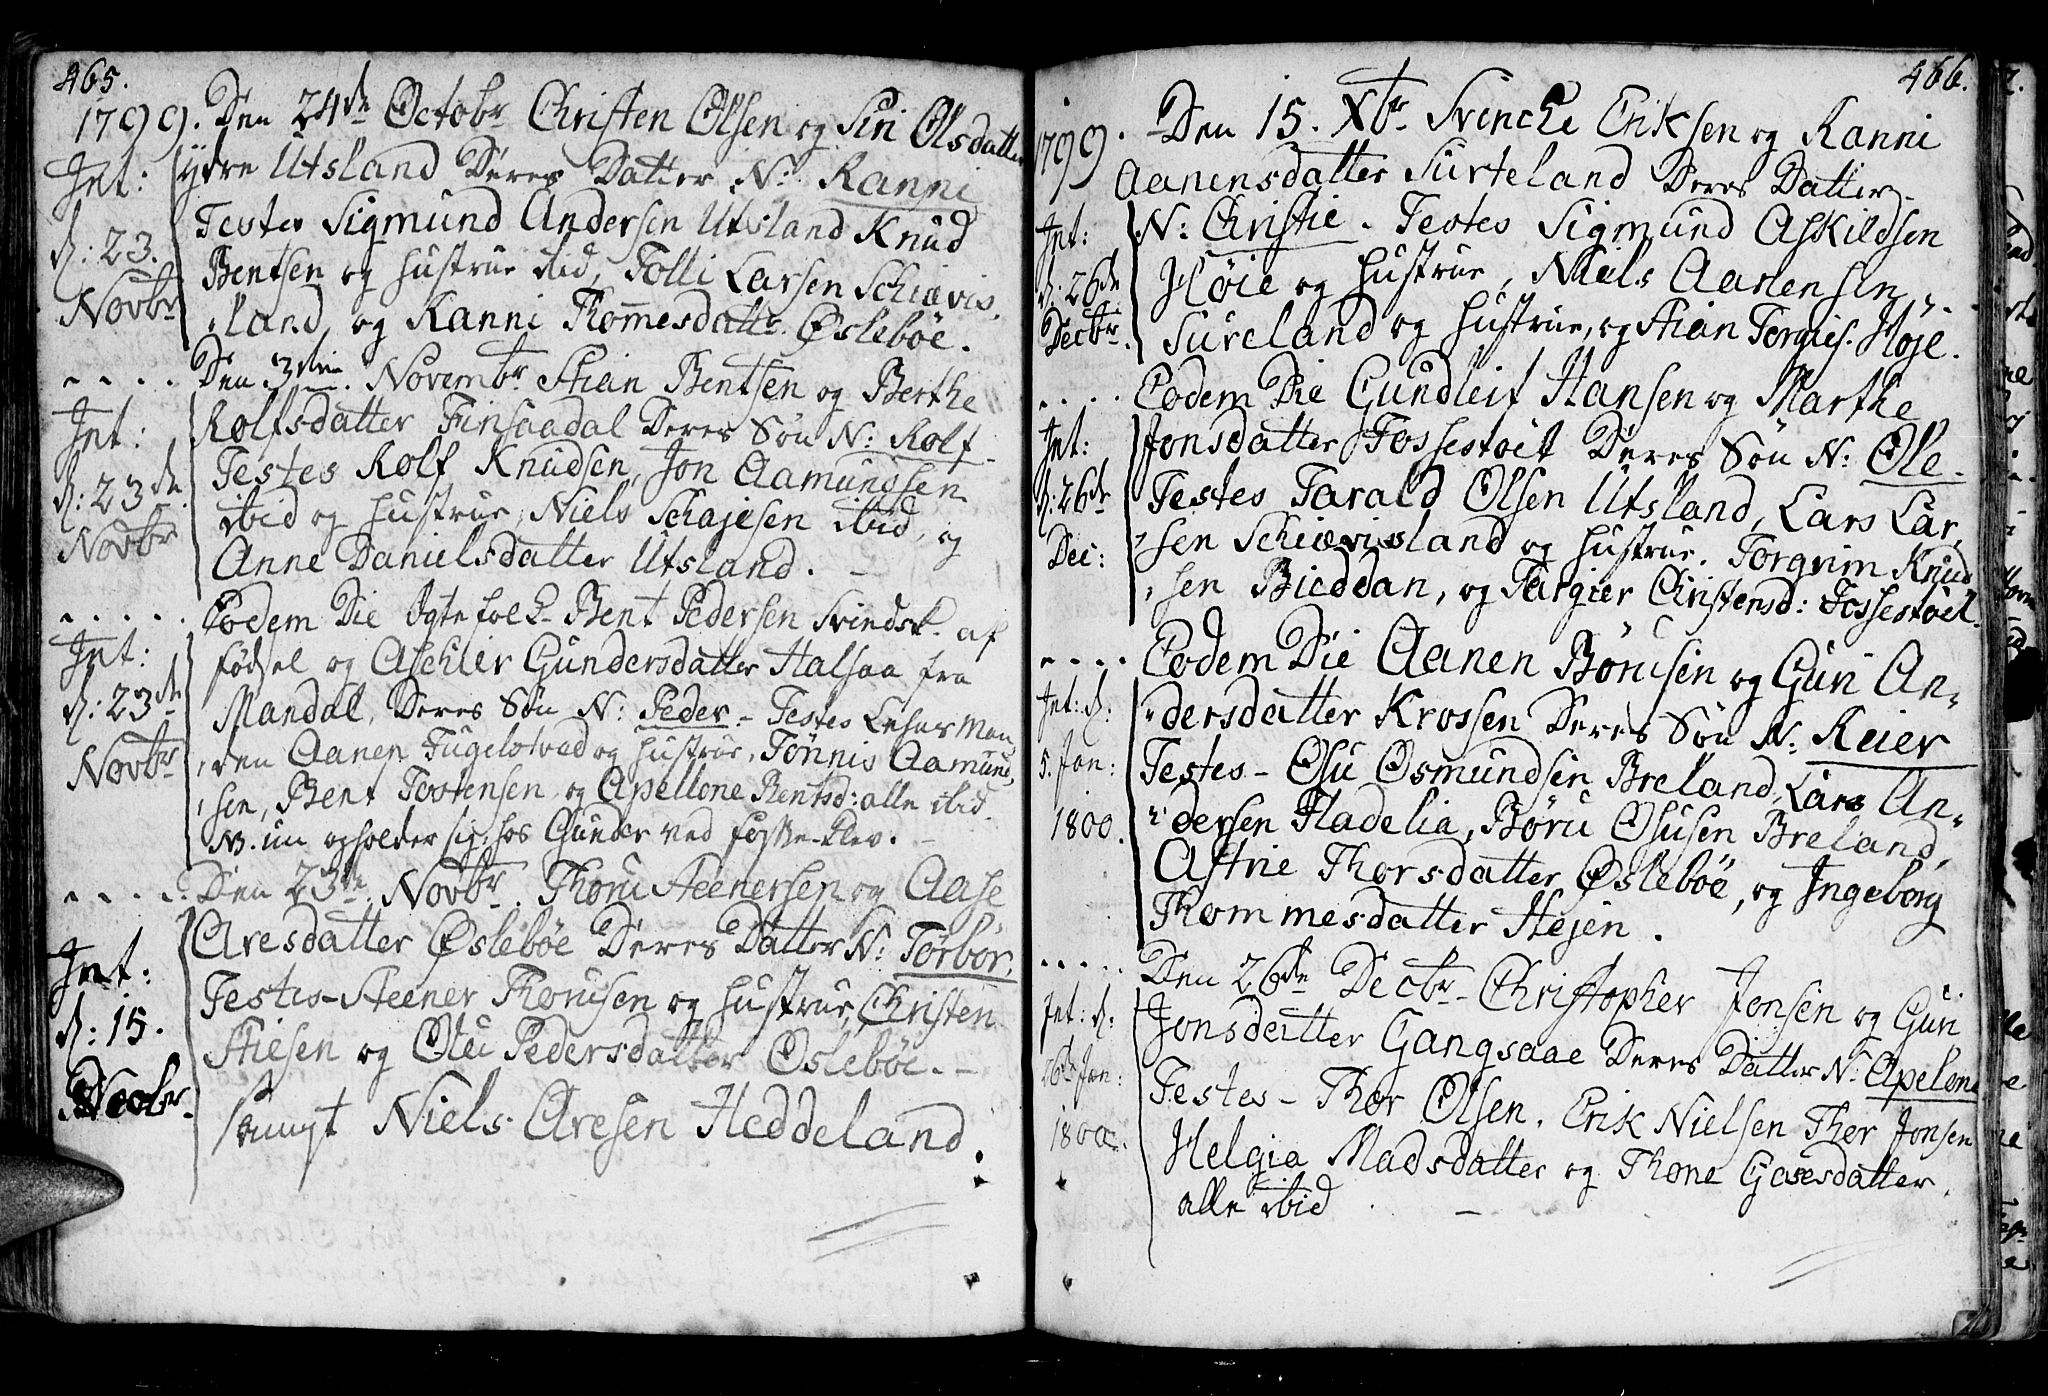 465.
1799. Den 24de Octobr Christen Olsen og Siri Olsdatter
Int: ydre Utsland Deres Datter N: Ranni
Testes Sigmund Andersen Utsland Knud
d: 23. Bentsen og Hustrue ibid, Tolli Larsen Schiævis,
Novbr ,land, og Ranni Thommesdatter Øslebøe.
Den 3die Novembr Stian Bentsen og Berthe
Int: Rolfsdatter Finsaadal Deres Søn N: Rolf
Testes Rolf Knudsen, Jon Aamundsen
d: 23de ibid og Hustrue, Niels Schajesen ibid, og
Novbr Anne Danielsdatter Utsland.
Eodem Die Egtefolk Bent Pedersen Svindsl. af
Int: fødsel og Aschier Gundersdatter Halsaa fra
d: 23de Mandal, Deres Søn N: Peder - Testes
,den Aanen Fugelstved og Hustrue, Tønnis Aamund,
Novbr ,sen, Bent Torstensen og Apellone Bentsd: alle ibid.
NB. un opholder sig hos Gunder ved
Den 23de Novbr. Thoru Steenersen og Aase
Aresdatter Øslebøe Deres Datter N: Torbor.
Int: Testes - Steener Thorusen og Hustrue, Christen
d: 15. Stiesen og Olu Pedersdatter Øslebøe. -
Decbr. samt Niels Aresen Heddeland.
466.
1799. Den 15. Xbr Svinche Eriksen og Ranni
Aanensdatter Surteland Deres Datter
Int: N: Christie. Testes Sigmund Askildsen
d. 26de Høie og Hustrue, Niels Aanensen,
Decbr. Sureland og Hustrue, og Stian Torgies. Høje.
Eodem Die Gundleif Hansen og Marthe
Int: Jonsdatter Fossestøil Deres Søn N: Ole.
d: 26de Testes Tarald Olsen Utsland, Lars Lar,
Dec: ,sen Schiævisland og Hustrue. Torgrim Knud
,sen Bieddan, og Targier Christensd: Fossestøil.
Eodem Die Aanen Børusen og Guri An=
Int: d. =dersdatter Krossen Deres Søn N: Reier
5. Jan: Testes - Olu Osmundsen Breland, Lars An=
1800. =dersen Fladelia, Børu Olusen Breland,
Astrie Thorsdatter Øslebøe, og Ingeborg
Thommesdatter Hejen.
Den 26de Decbr - Christopher Jonsen og Guri
Int: d. Jonsdatter Gangsaae Deres Datter N: Apelone
26de Jan: Testes - Thor Olsen. Erik Nielsen Thor Jonsen
1800. Helgia Madsdatter og Thone Gasesdatter.
alle ibid